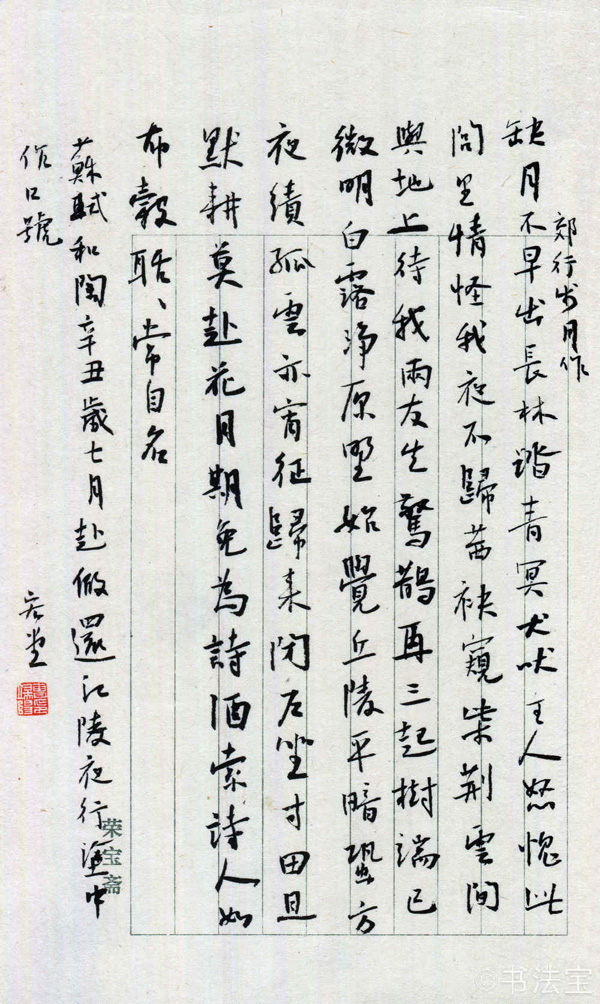 郊行步月作
缺月不早出長林踏青冥犬吠主人怒愧此
閭里情怪我夜不歸茜袂窺柴荊雲間
與地上待我兩友生驚鵲再三起樹端已
微明白露淨原野始覺丘陵平暗蛩方
夜績孤雲亦宵征歸來閉戶坐寸田且
默耕莫赴花月期免為詩酒縈詩人如
布穀聒〻常自名
蘇軾和陶辛丑歲七月赴假還江陵夜行塗中
作口號
荣宝斋
@书法宝